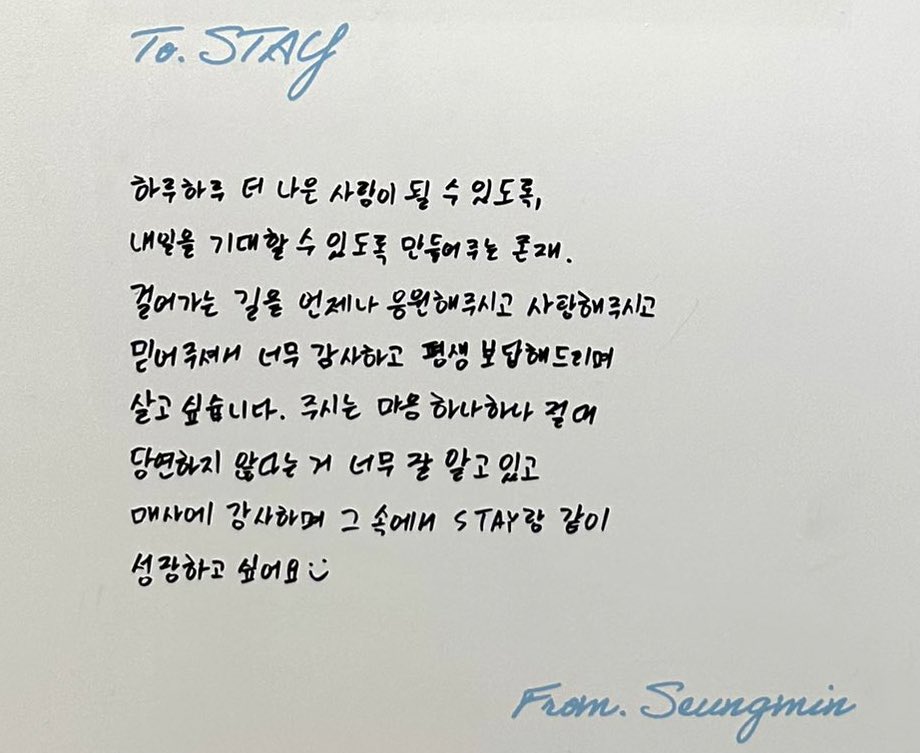 To. STAY
하루하루 더 나은 사람이 될 수 있도록,
내일을 기대할 수 있도록 만들어주는 존재.
걸어가는 길을 언제나 응원해주시고 사랑해주시고
믿어주셔서 너무 감사하고 평생 보답해드리며
살고 싶습니다. 주시는 마음 하나하나 절대
당연하지 않다는 거 너무 잘 알고 있고
매사에 감사하며 그 속에서 STAY랑 같이
성장하고 싶어요 :)
From. Seungmin